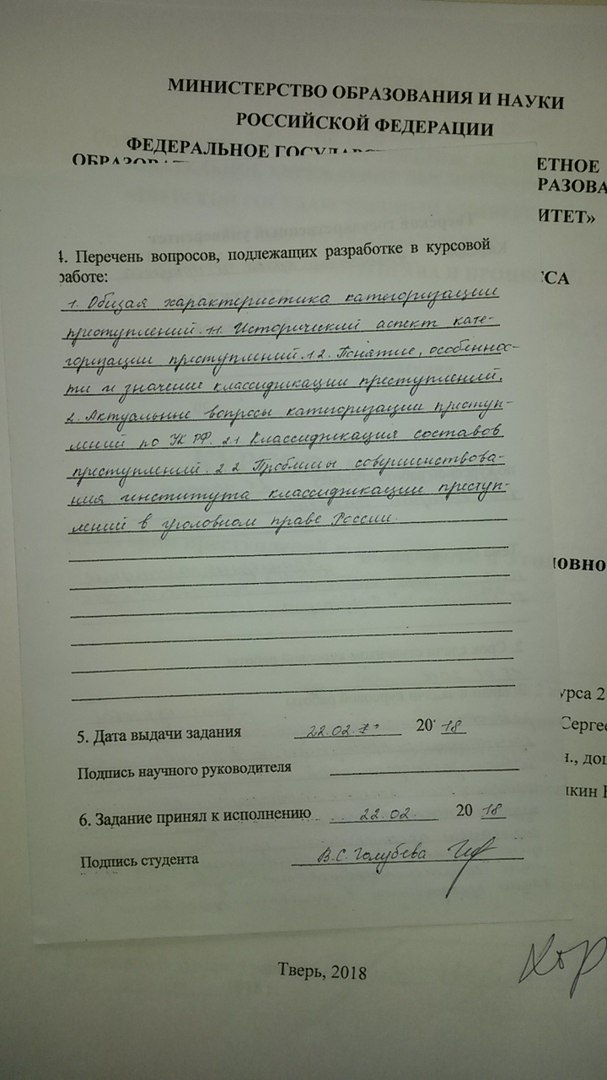 МИНИСТЕРСТВО ОБРАЗОВАНИЯ И НАУКИ
РОССИЙСКОЙ ФЕДЕРАЦИИ
ФЕДЕРАЛЬНОЕ
ЕТНОЕ
РАЗОВА
ИТЕТ»
СА
4. Перечень вопросов, подлежащих разработке в курсовой
работе:
1. Общая характеристика категоризации
приступлений. 1.1. Исторический аспект кате-
горизации приступлений. 1.2. Понятие, особеннос-
ти и значение классификации преступлений.
2. Актуальные вопросы категоризации приступ-
лений по УК РФ. 2.1 Классификация составов
приступлений. 2.2 Проблемы совершенствова-
ния института классификации преступ-
лений в уголовном праве России.
5. Дата выдачи задания 22.02. 20 18
Подпись научного руководителя
6. Задание принял к исполнению 22.02. 20 18
Подпись студента В.С. Голубева
ОВНО
урса 2
Сергее
н., доц
Тверь, 2018